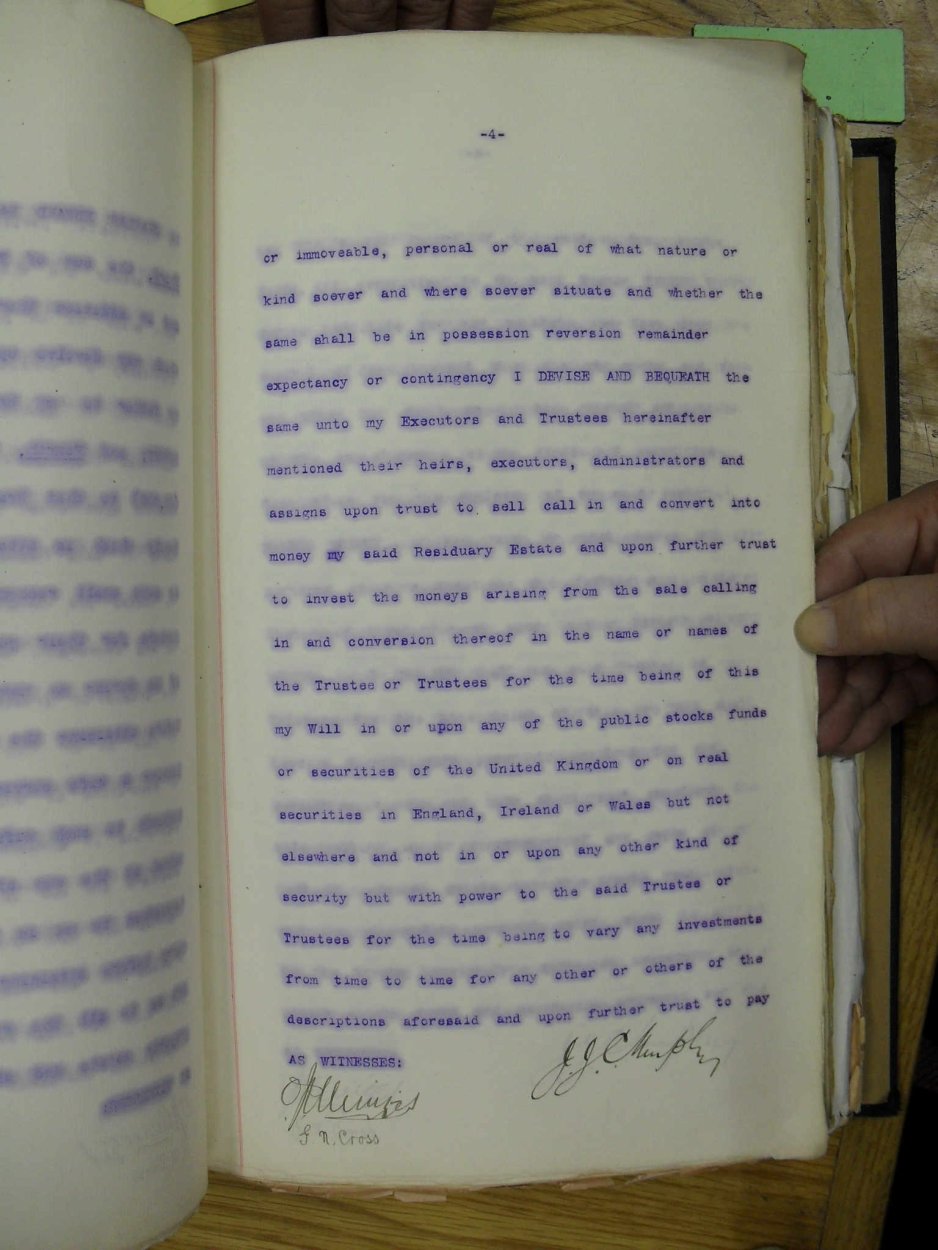 -4-
or immoveable, personal or real of what nature or
kind soever and where soever situate and whether the
same shall be in possession reversion remainder
expectancy or contingency I DEVISE AND BEQUEATH the
same unto my Executors and Trustees hereinafter
mentioned their heirs, executors, administrators and
assigns upon trust to sell call in and convert into
money my said Residuary Estate and upon further trust
to invest the moneys arising from the sale calling
in and conversion thereof in the name or names of
the Trustee or Trustees for the time being of this
my Will in or upon any of the public stocks funds
or securities of the United Kingdom or on real
securities in England, Ireland or Wales but not
elsewhere and not in or upon any other kind of
security but with power to the said Trustee or
Trustees for the time being to vary any investments
from time to time for any other or others of the
descriptions aforesaid and upon further trust to pay
AS WITNESSES:
J. J. C. Murphy
G. R. Cross